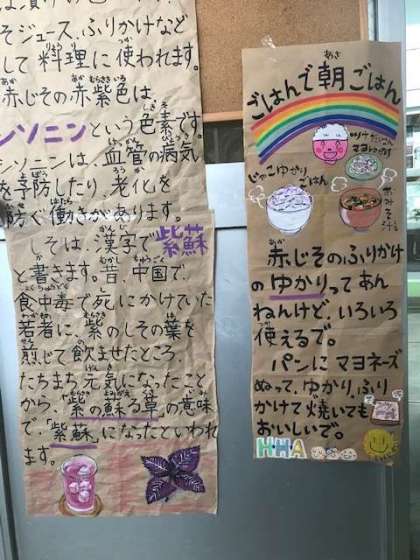 そジュース、ふりかけなど
して料理に使われます。
赤じその赤紫色は
シソニンという色素です。
シソニンは、血管の病気
を予防したり、老化を
防ぐ働きがあります。
しそは、漢字で紫蘇
と書きます。昔、中国で、
食中毒で死にかけていた
若者に、紫のしその葉を
煎じて飲ませたところ、
たちまち元気になったこと
から、"紫の蘇る草"の意味
で、"紫蘇"になったといわれ
ます。
ごはんで朝ごはん
マヨネーズ
じゃこゆかりごはん
赤じそのふりかけ
のゆかりってあん
ねんけど、いろいろ
使えるで。
パンにマヨネーズ
ぬって、ゆかり、ふり
かけて焼いても
おいしいで。
HHA